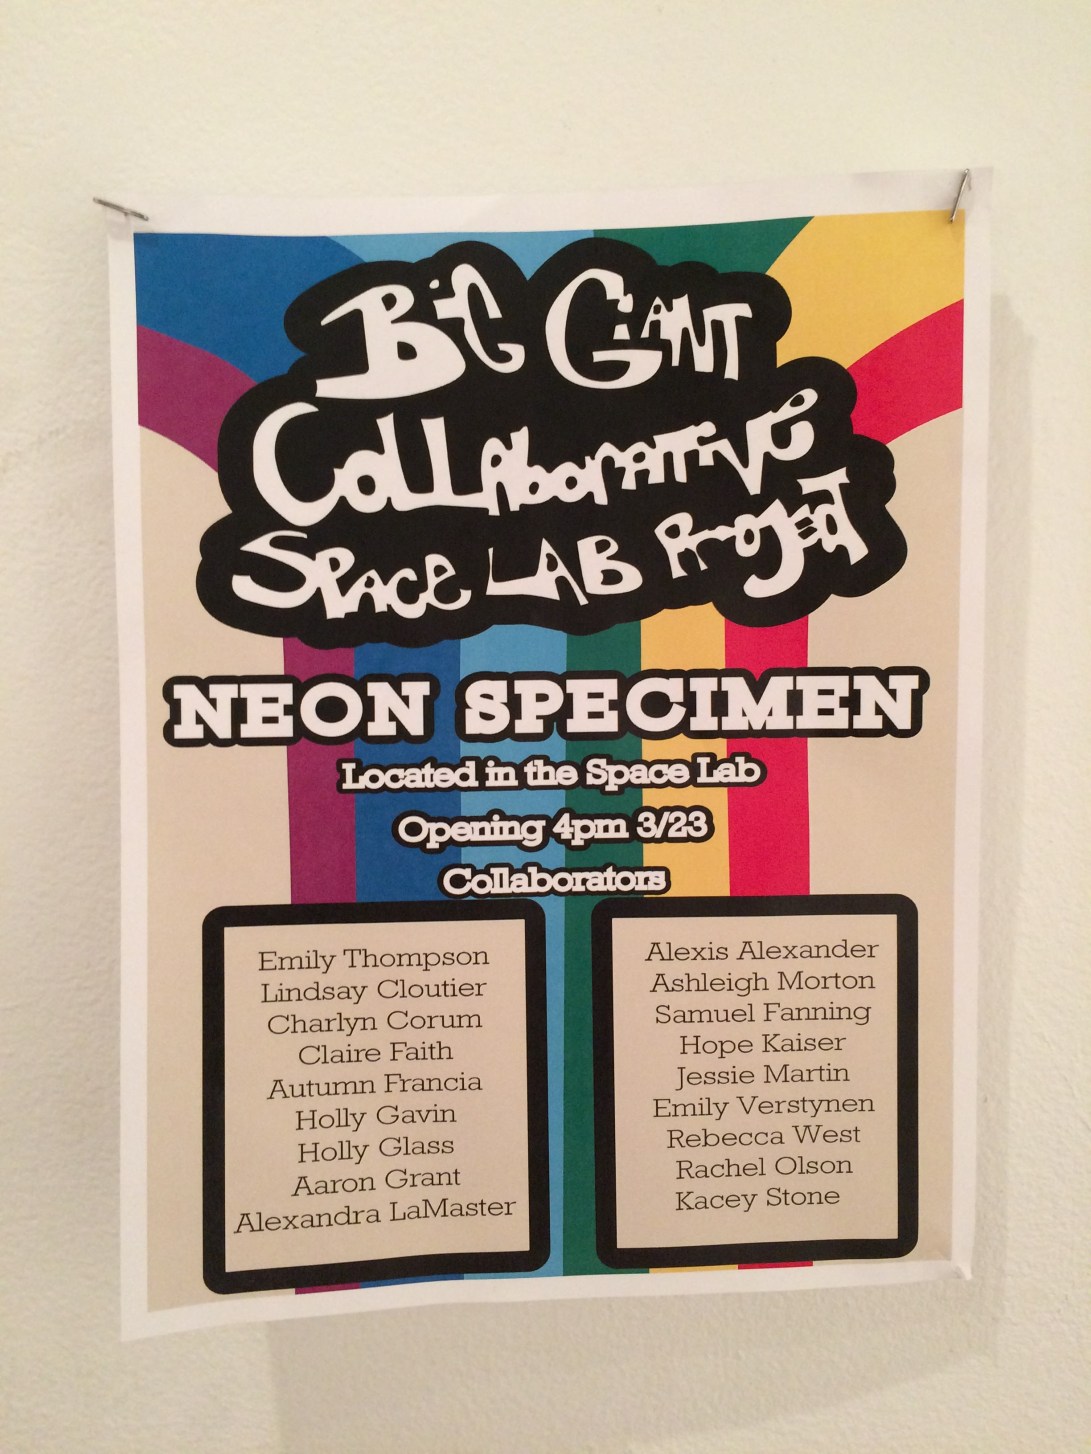 BiG GiANT
CoLLAboratiVe
SPAce LAB Project
NEON SPECIMEN
Located in the Space Lab
Opening 4pm 3/23
Collaborators
Emily Thompson
Lindsay Cloutier
Charlyn Corum
Claire Faith
Autumn Francia
Holly Gavin
Holly Glass
Aaron Grant
Alexandra LaMaster
Alexis Alexander
Ashleigh Morton
Samuel Fanning
Hope Kaiser
Jessie Martin
Emily Verstynen
Rebecca West
Rachel Olson
Kacey Stone